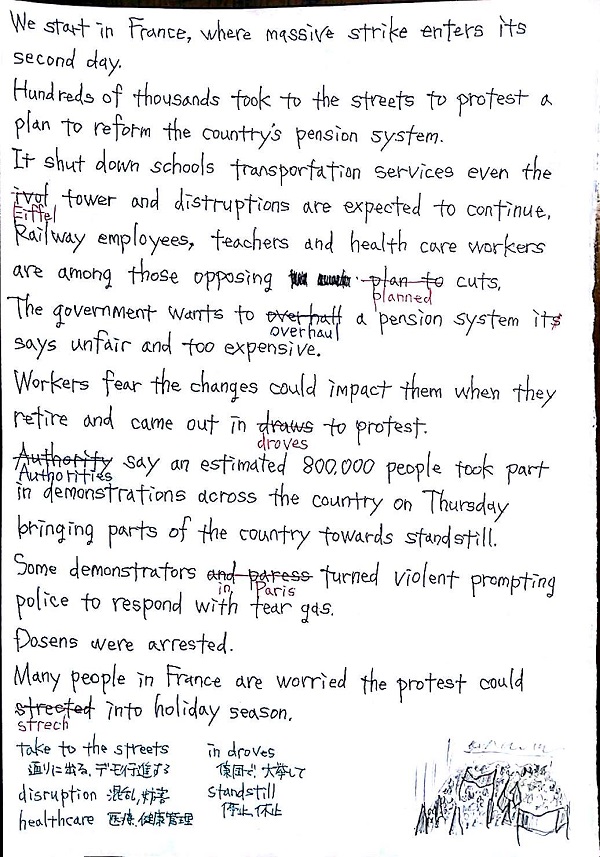 We start in France, where massive strike enters its
second day.
Hundreds of thousands took to the streets to protest a
plan to reform the country's pension system.
It shut down schools transportation services even the
ivof tower and distruptions are expected to continue.
Eiffel
Railway employees, teachers and health care workers
are among those opposing plan to cuts.
planned
The government wants to over half a pension system its
overhaul
says unfair and too expensive.
Workers fear the changes could impact them when they
retire and came out in draws to protest.
droves
Authority say an estimated 800,000 people took part
Authorities
in demonstrations across the country on Thursday
bringing parts of the country towards standstill.
Some demonstrators and paress turned violent prompting
in Paris
police to respond with tear gas.
Dosens were arrested.
Many people in France are worried the protest could
streeted into holiday season.
strech
take to the streets in droves
通りに出る、デモ行進する 集団で、大挙して
disruption 混乱,妨害 standstill
healthcare 医療、健康管理 停止、休止